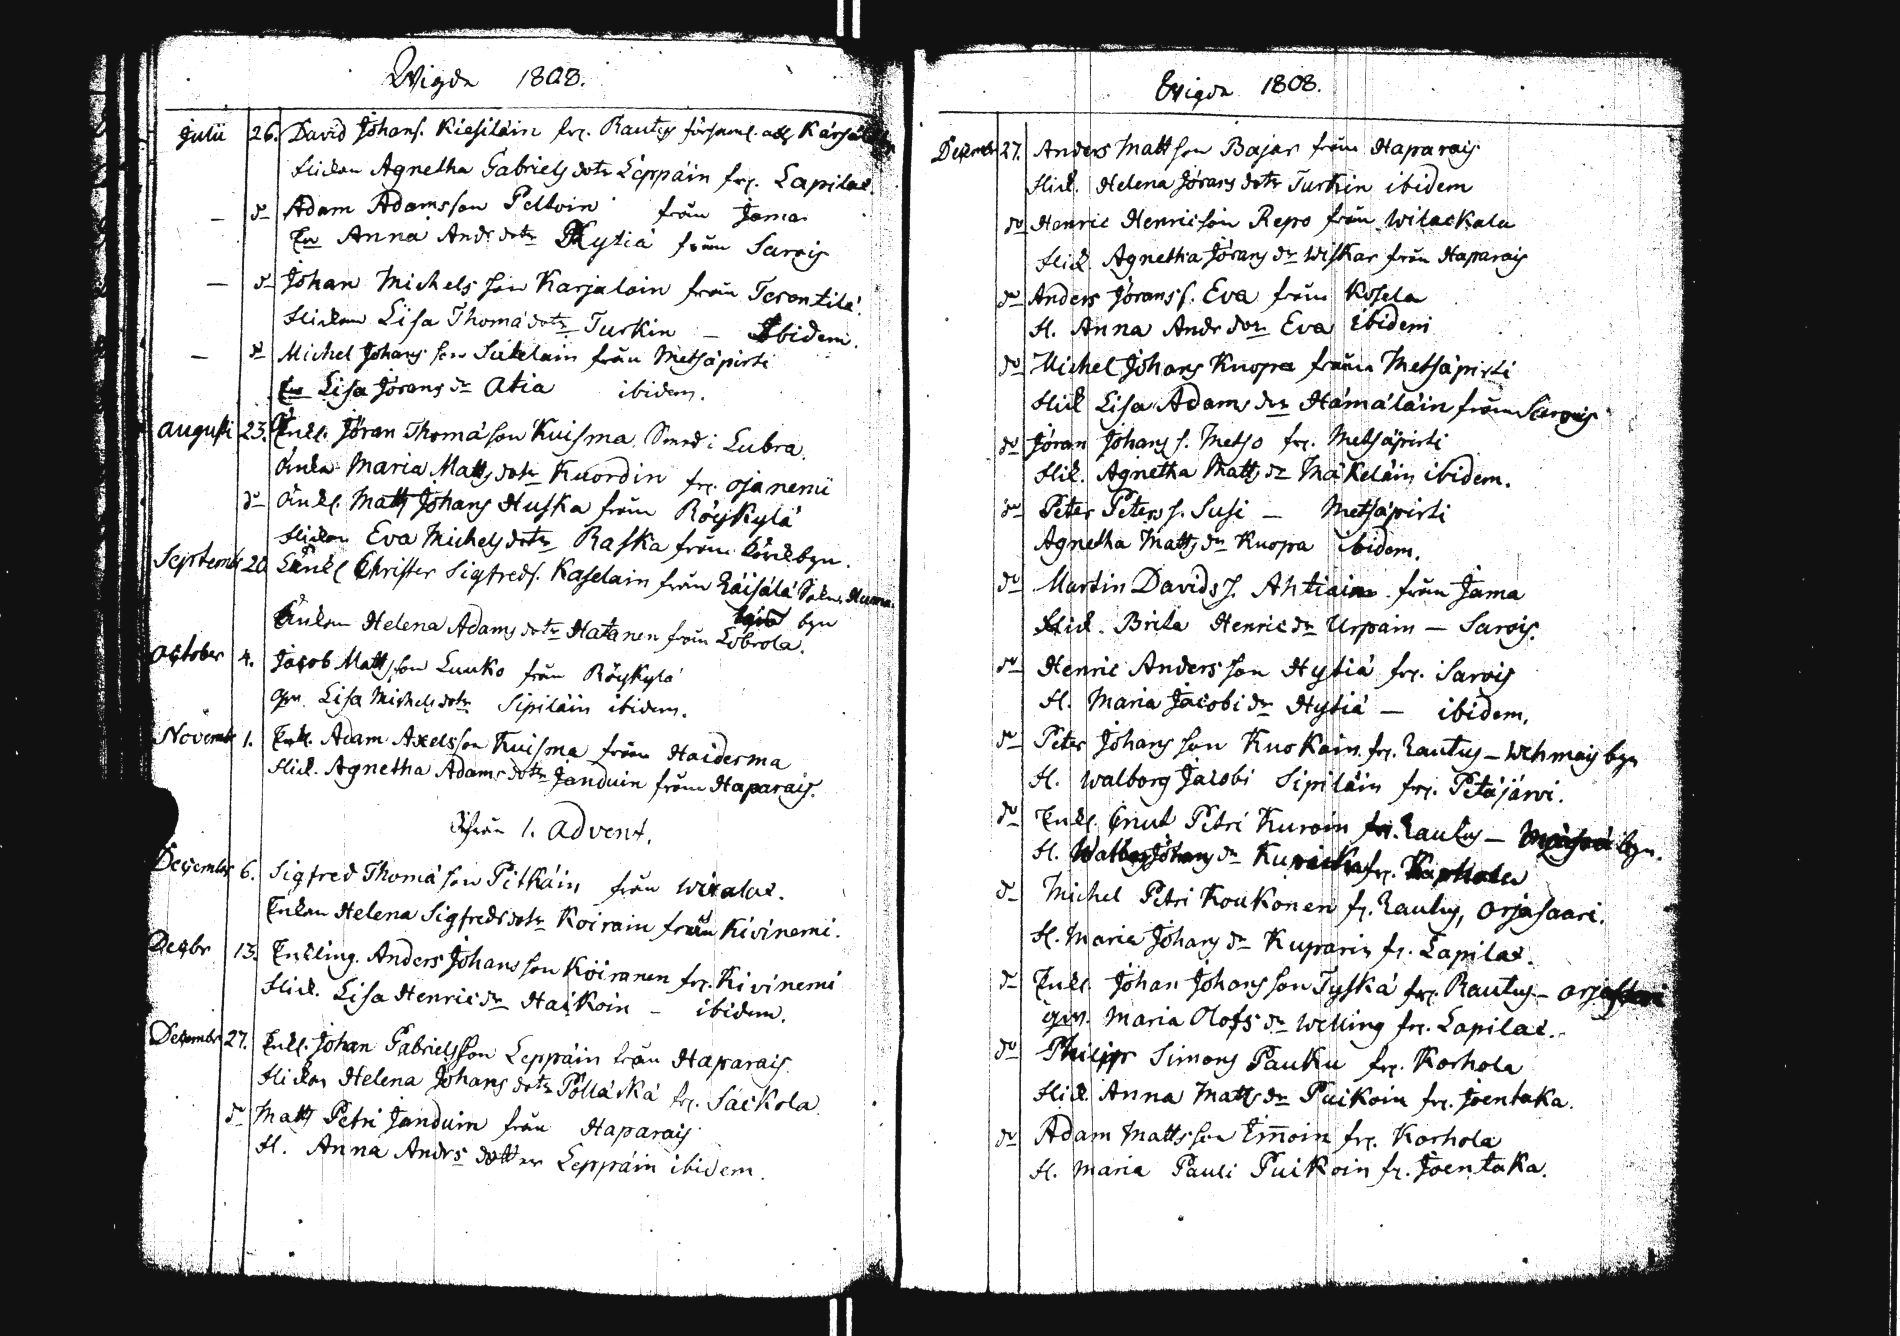 Wigda 1808.
Julii 26. David Johans. Kiesiläin fr. Rautus församl. och
Flickan Agnetha Gabriels dotr Leppäin frn. Lapilax.
— do Adam Adamsson Peltoin från Jama
Anna Andrs dotr Hytiä från Sarois
— do Johan Michelsson Karjalain från Terentilä.
Flickan Lisa Thomä dotr Turkin — Ibidem.
— do Michel Johans son Sukelain från Metsäpirti
Lisa Jörans dr Atia ibidem.
Augusti 23. Enkl. Jöran Thomäson Kuisma Smed i Lubra.
Änkan Maria Matts dotr Kuordin frn. Ojanemii
do Änkl. Matts Johans Huska från Röykylä
Flickan Eva Michels dotr Raska från byn.
Septembr 20 Enkl Christer Sigfreds. Kaselain från Räisälä Sokn.
byn
Änkan Helena Adams dotr Hatanen från
October 4. Jacob Mattsson Luuko från Röykylä
qvn. Lisa Michels dotr Sipiläin ibidem.
Novembr 1. Enkl. Adam Axelsson Kuisma från Haiderma
Flick. Agnetha Adams dotr Janduin från Haparais.
Ifrån 1. Advent.
December 6. Sigfred Thomä son Pitkäin från Wixalax.
Enkan Helena Sigfrids dotr Koirain från Kivinemi.
Decbr 13. Enkling. Anders Johansson Koiranen frn. Kivinemi
Flick. Lisa Henric dr Haikoin – ibidem.
Decembr 27. Enkl. Johan Gabrielsson Leppäin från Haparais.
Flickan Helena Johans dotr Pölläckä frn. Säckola
do Matts Petri Janduin från Haparais
Fl. Anna Andrs dotter Leppäin ibidem.
Wigda 1808.
Decembr 27. Anders Mattson Bajar från Haparais
Flick. Helena Jörans dotr Turkin ibidem
do Henric Henricson Repo från Wilackala
Flick. Agnetha Jörans dr Wiskar från Haparais
do Anders Jöranss. Eva från Kosela
Fl. Anna Andr dotr Eva ibidem
do Michel Johans Kuopa från Metsäpirti
Flick Lisa Adams dr Hämäläin från Sarois
do Jöran Johans s. Metso frn. Metsäpirti
Flick. Agnetha Matts dr Mäkeläin ibidem.
do Peter Peters s. Susi — Metsäpirti
Agnetha Matts dr Kuopa ibidem.
do Martin Davids s. Ahtiain från Jama
Flick. Brita Henric dr Urpain — Sarois.
do Henric Andersson Hytiä frn. Sarois
Fl. Maria Jacobi dr Hytiä — ibidem.
do Peter Johans son Kuokain frn. Rautus — Wehmais byn
Fl. Walborg Jacobi Sipiläin frn. Petäjärvi.
do Enkl. Cnut Petri Kuroin frn. Rautus — byn.
Fl. Walborg Johans dr
do Michel Petri Koukonen fr. Rautus, Orjasaari.
Fl. Maria Johans dr Kuparin fr. Lapilax.
do Enkl. Johan Johansson Tyskä frn. Rautus — Orjasaari
qvn. Maria Olofs dr Welling frn. Lapilax.
do Philipp Simons Pauku frn. Korhola
Flick. Anna Matts dr Puikoin frn. Joentaka.
do Adam Mattsson Immoin frn. Korhola
Fl. Maria Pauli Puikoin fr. Joentaka.